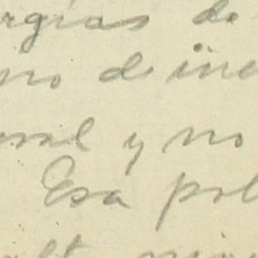 ergías de
no de ine
oral y no
Esa pol